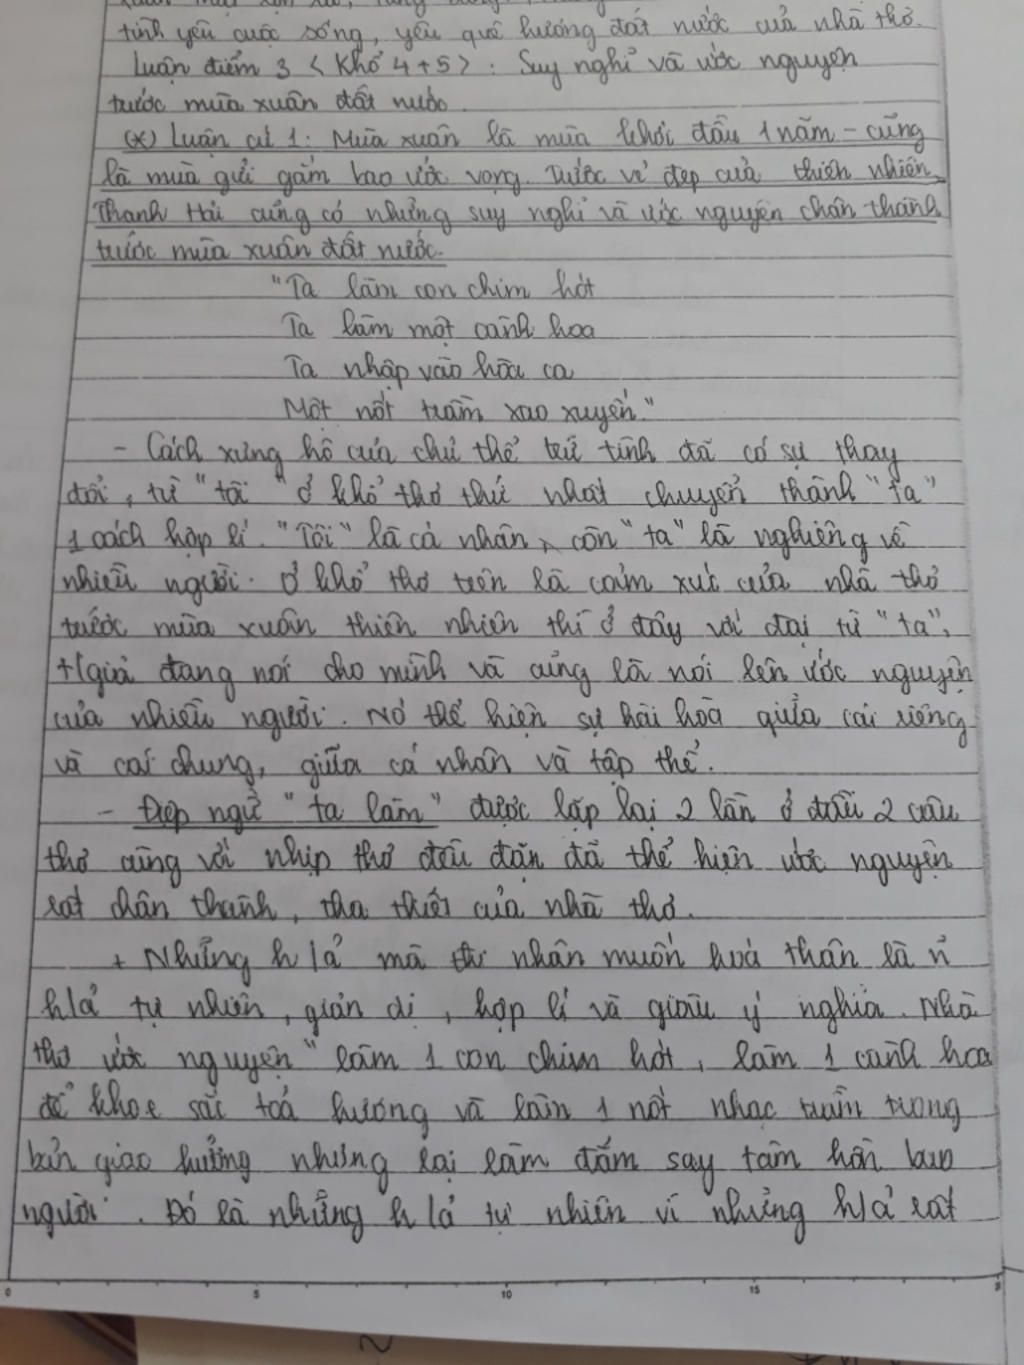 tình yêu cuộc sống, yêu quê hương đất nước của nhà thơ.
Luận điểm 3 < Khổ 4+5 > : Suy nghĩ và ước nguyện
trước mùa xuân đất nước.
(*) Luận cứ 1: Mùa xuân là mùa khởi đầu 1 năm - cũng
là mùa gửi gắm bao ước vọng. Trước vẻ đẹp của thiên nhiên,
Thanh Hải cũng có những suy nghĩ và ước nguyện chân thành
trước mùa xuân đất nước.
"Ta làm con chim hót
Ta làm một cành hoa
Ta nhập vào hòa ca
Một nốt trầm xao xuyến."
- Cách xưng hô của chủ thể trữ tình đã có sự thay
đổi, từ "tôi" ở khổ thơ thứ nhất chuyển thành "ta"
1 cách hợp lí. "Tôi" là cá nhân, còn "ta" là nghiêng về
nhiều người. Ở khổ thơ trên là cảm xúc của nhà thơ
trước mùa xuân thiên nhiên thì ở đây với đại từ "ta",
t/giả đang nói cho mình và cũng là nói lên ước nguyện
của nhiều người. Nó thể hiện sự hài hòa giữa cái riêng
và cái chung, giữa cá nhân và tập thể.
- Điệp ngữ "ta làm" được lặp lại 2 lần ở đầu 2 câu
thơ cùng với nhịp thơ đều đặn đã thể hiện ước nguyện
rất chân thành, tha thiết của nhà thơ.
+ Những h/ả mà thi nhân muốn hoá thân là n~
h/ả tự nhiên, giản dị, hợp lí và giàu ý nghĩa. Nhà
thơ ước nguyện "làm 1 con chim hót, làm 1 cành hoa
để khoe sắc toả hương và làm 1 nốt nhạc trầm trong
bản giao hưởng nhưng lại làm đắm say tâm hồn bao
người. Đó là những h/ả tự nhiên vì những h/ả rất
0 5 10 15